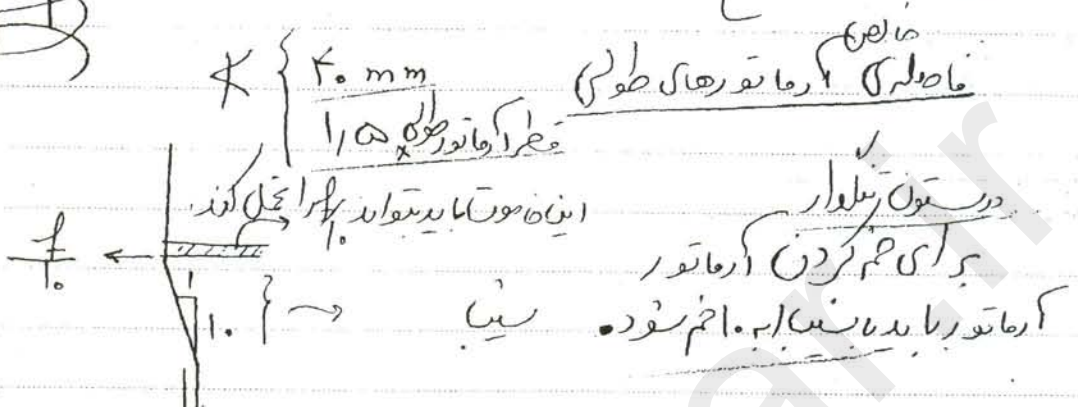 خالص
فاصله‌ی آرماتورهای طولی ≮ { ۴۰ mm
۱٫۵ × قطر آرماتور طولی
در ستون تنگ‌دار این خاموت‌ها باید بتواند f/۱۰ را تحمل کند.
برای خم کردن آرماتور
f/۱۰
آرماتور باید با شیب ۱ به ۱۰ خم شود. شیب
۱
۱۰